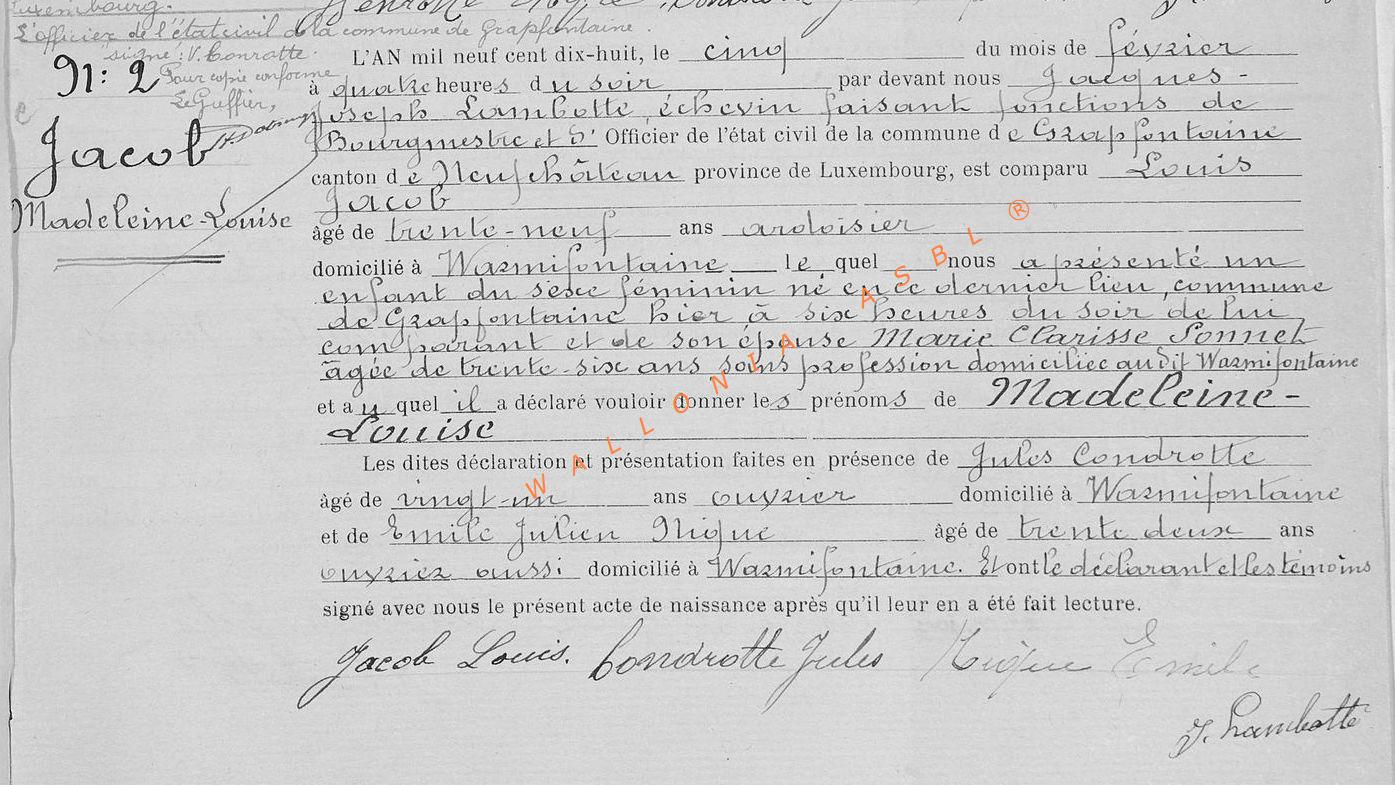 Luxembourg.
L'officier de l'état civil de la commune de Grapfontaine.
signé: V. Conrotte.
Pour copie conforme
Le Greffier,
N: 2
Jacob
Madeleine-Louise
L'AN mil neuf cent dix-huit, le cinq du mois de février
à quatre heures du soir par devant nous Jacques-
Joseph Lambotte, échevin faisant fonctions de
Bourgmestre et d' Officier de l'état civil de la commune de Grapfontaine
canton de Neufchâteau province de Luxembourg, est comparu Louis
Jacob
âgé de trente-neuf ans ardoisier
domicilié à Warmifontaine lequel nous a présenté un
enfant du sexe féminin né en ce dernier lieu, commune
de Grapfontaine hier à six heures du soir de lui
comparant et de son épouse Marie Clarisse Sonnet
âgée de trente-six ans sans profession domiciliée audit Warmifontaine
et au quel il a déclaré vouloir donner les prénoms de Madeleine-
Louise
Les dites déclaration et présentation faites en présence de Jules Condrotte
âgé de vingt-un ans ouvrier domicilié à Warmifontaine
et de Emile Julien Nique âgé de trente deux ans
ouvrier aussi domicilié à Warmifontaine. Et ont le déclarant et les témoins
signé avec nous le présent acte de naissance après qu'il leur en a été fait lecture.
Jacob Louis. Condrotte Jules Nique Emile
J. Lambotte
WALLONIA ASBL ®